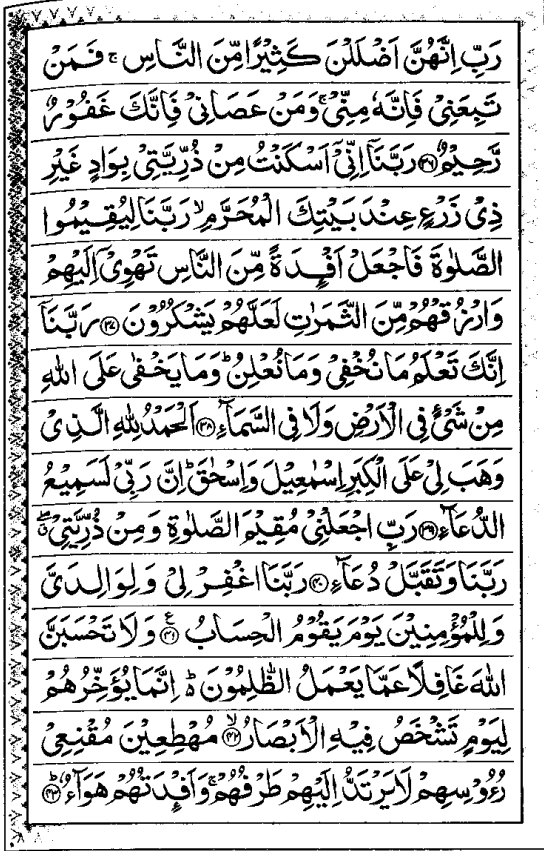 رَبِّ اِنَّهُنَّ اَضْلَلْنَ كَثِيْرًا مِّنَ النَّاسِ ۚ فَمَنْ
تَبِعَنِيْ فَاِنَّهٗ مِنِّيْ ۚ وَمَنْ عَصَانِيْ فَاِنَّكَ غَفُوْرٌ
رَّحِيْمٌ ﴿۳۶﴾ رَبَّنَاۤ اِنِّيْۤ اَسْكَنْتُ مِنْ ذُرِّيَّتِيْ بِوَادٍ غَيْرِ
ذِيْ زَرْعٍ عِنْدَ بَيْتِكَ الْمُحَرَّمِ ۙ رَبَّنَا لِيُقِيْمُوا
الصَّلٰوةَ فَاجْعَلْ اَفْـِٕدَةً مِّنَ النَّاسِ تَهْوِيْۤ اِلَيْهِمْ
وَارْزُقْهُمْ مِّنَ الثَّمَرٰتِ لَعَلَّهُمْ يَشْكُرُوْنَ ﴿۳۷﴾ رَبَّنَاۤ
اِنَّكَ تَعْلَمُ مَا نُخْفِيْ وَمَا نُعْلِنُ ؕ وَمَا يَخْفٰى عَلَى اللّٰهِ
مِنْ شَيْءٍ فِي الْاَرْضِ وَلَا فِي السَّمَآءِ ﴿۳۸﴾ اَلْحَمْدُ لِلّٰهِ الَّذِيْ
وَهَبَ لِيْ عَلَى الْكِبَرِ اِسْمٰعِيْلَ وَاِسْحٰقَ ؕ اِنَّ رَبِّيْ لَسَمِيْعُ
الدُّعَآءِ ﴿۳۹﴾ رَبِّ اجْعَلْنِيْ مُقِيْمَ الصَّلٰوةِ وَمِنْ ذُرِّيَّتِيْ ۖ ق
رَبَّنَا وَتَقَبَّلْ دُعَآءِ ﴿۴۰﴾ رَبَّنَا اغْفِرْ لِيْ وَلِوَالِدَيَّ
وَلِلْمُؤْمِنِيْنَ يَوْمَ يَقُوْمُ الْحِسَابُ ﴿۴۱﴾ ع وَلَا تَحْسَبَنَّ
اللّٰهَ غَافِلًا عَمَّا يَعْمَلُ الظّٰلِمُوْنَ ؕ اِنَّمَا يُؤَخِّرُهُمْ
لِيَوْمٍ تَشْخَصُ فِيْهِ الْاَبْصَارُ ﴿۴۲﴾ ۙ مُهْطِعِيْنَ مُقْنِعِيْ
رُءُوْسِهِمْ لَا يَرْتَدُّ اِلَيْهِمْ طَرْفُهُمْ ۚ وَاَفْـِٕدَتُهُمْ هَوَآءٌ ﴿۴۳﴾ ؕ